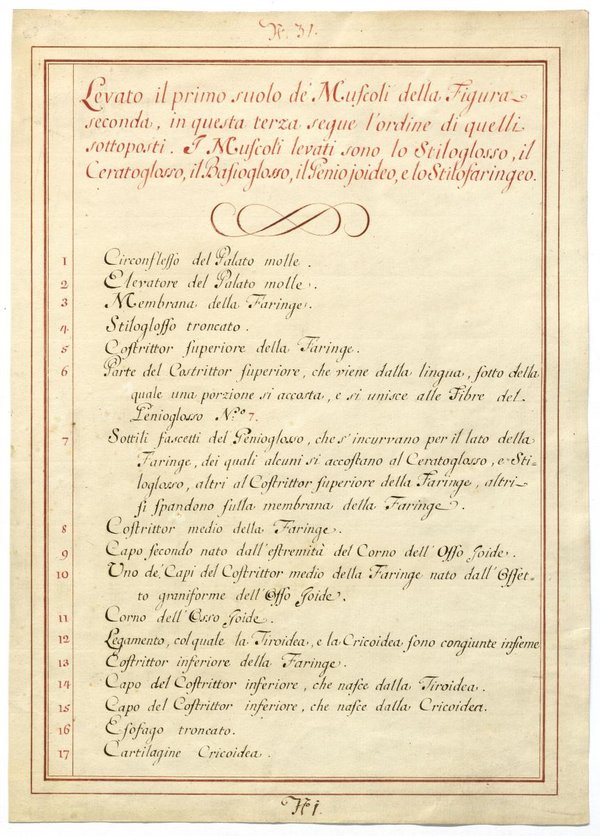 N. 31.
Levato il primo suolo de' Muſcoli della Figura
seconda, in questa terza segue l'ordine di quelli
sottoposti. I Muſcoli levati sono lo Stiloglosso, il
Ceratoglosso, il Baſioglosso, il Geniojoideo, e lo Stilofaringeo.
1 Circonfleſſo del Palato molle.
2 Elevatore del Palato molle.
3 Membrana della Faringe.
4 Stilogloſſo troncato.
5 Coſtrittor ſuperiore della Faringe.
6 Parte del Costrittor ſuperiore, che viene dalla lingua, ſotto della
quale una porzione si accosta, e si unisce alle Fibre del
Genioglosso N.º 7.
7 Sottili faſcetti del Genioglosso, che s'incurvano per il lato della
Faringe, dei quali alcuni si accoſtano al Ceratoglosso, e Sti-
loglosso, altri al Coſtrittor ſuperiore della Faringe, altri
ſi ſpandono ſulla membrana della Faringe.
8 Coſtrittor medio della Faringe.
9 Capo ſecondo nato dall'eſtremità del Corno dell'Oſſo Joide.
10 Uno de' Capi del Coſtrittor medio della Faringe nato dall'Oſſet-
to graniforme dell'Oſſo Joide.
11 Corno dell'Osso Joide.
12 Legamento, col quale la Tiroidea, e la Cricoidea ſono congiunte inſieme
13 Coſtrittor inferiore della Faringe.
14 Capo del Coſtrittor inferiore, che naſce dalla Tiroidea.
15 Capo del Coſtrittor inferiore, che naſce dalla Cricoidea.
16 Eſofago troncato.
17 Cartilagine Cricoidea.
Nº 1.